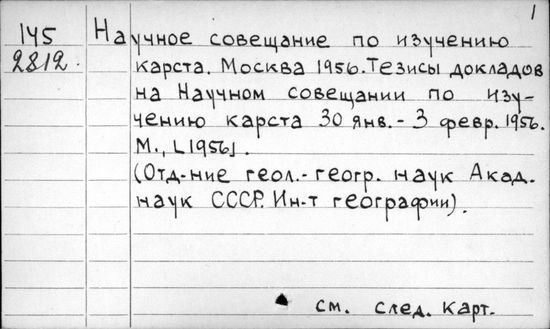 1
145 Научное совещание по изучению
2812. карста. Москва 1956. Тезисы докладов
на Научном совещании по изу-
чению карста 30 янв. - 3 февр. 1956.
М., [1956].
(Отд-ние геол.-геогр. наук Акад.
наук СССР. Ин-т географии).
см. след. карт.